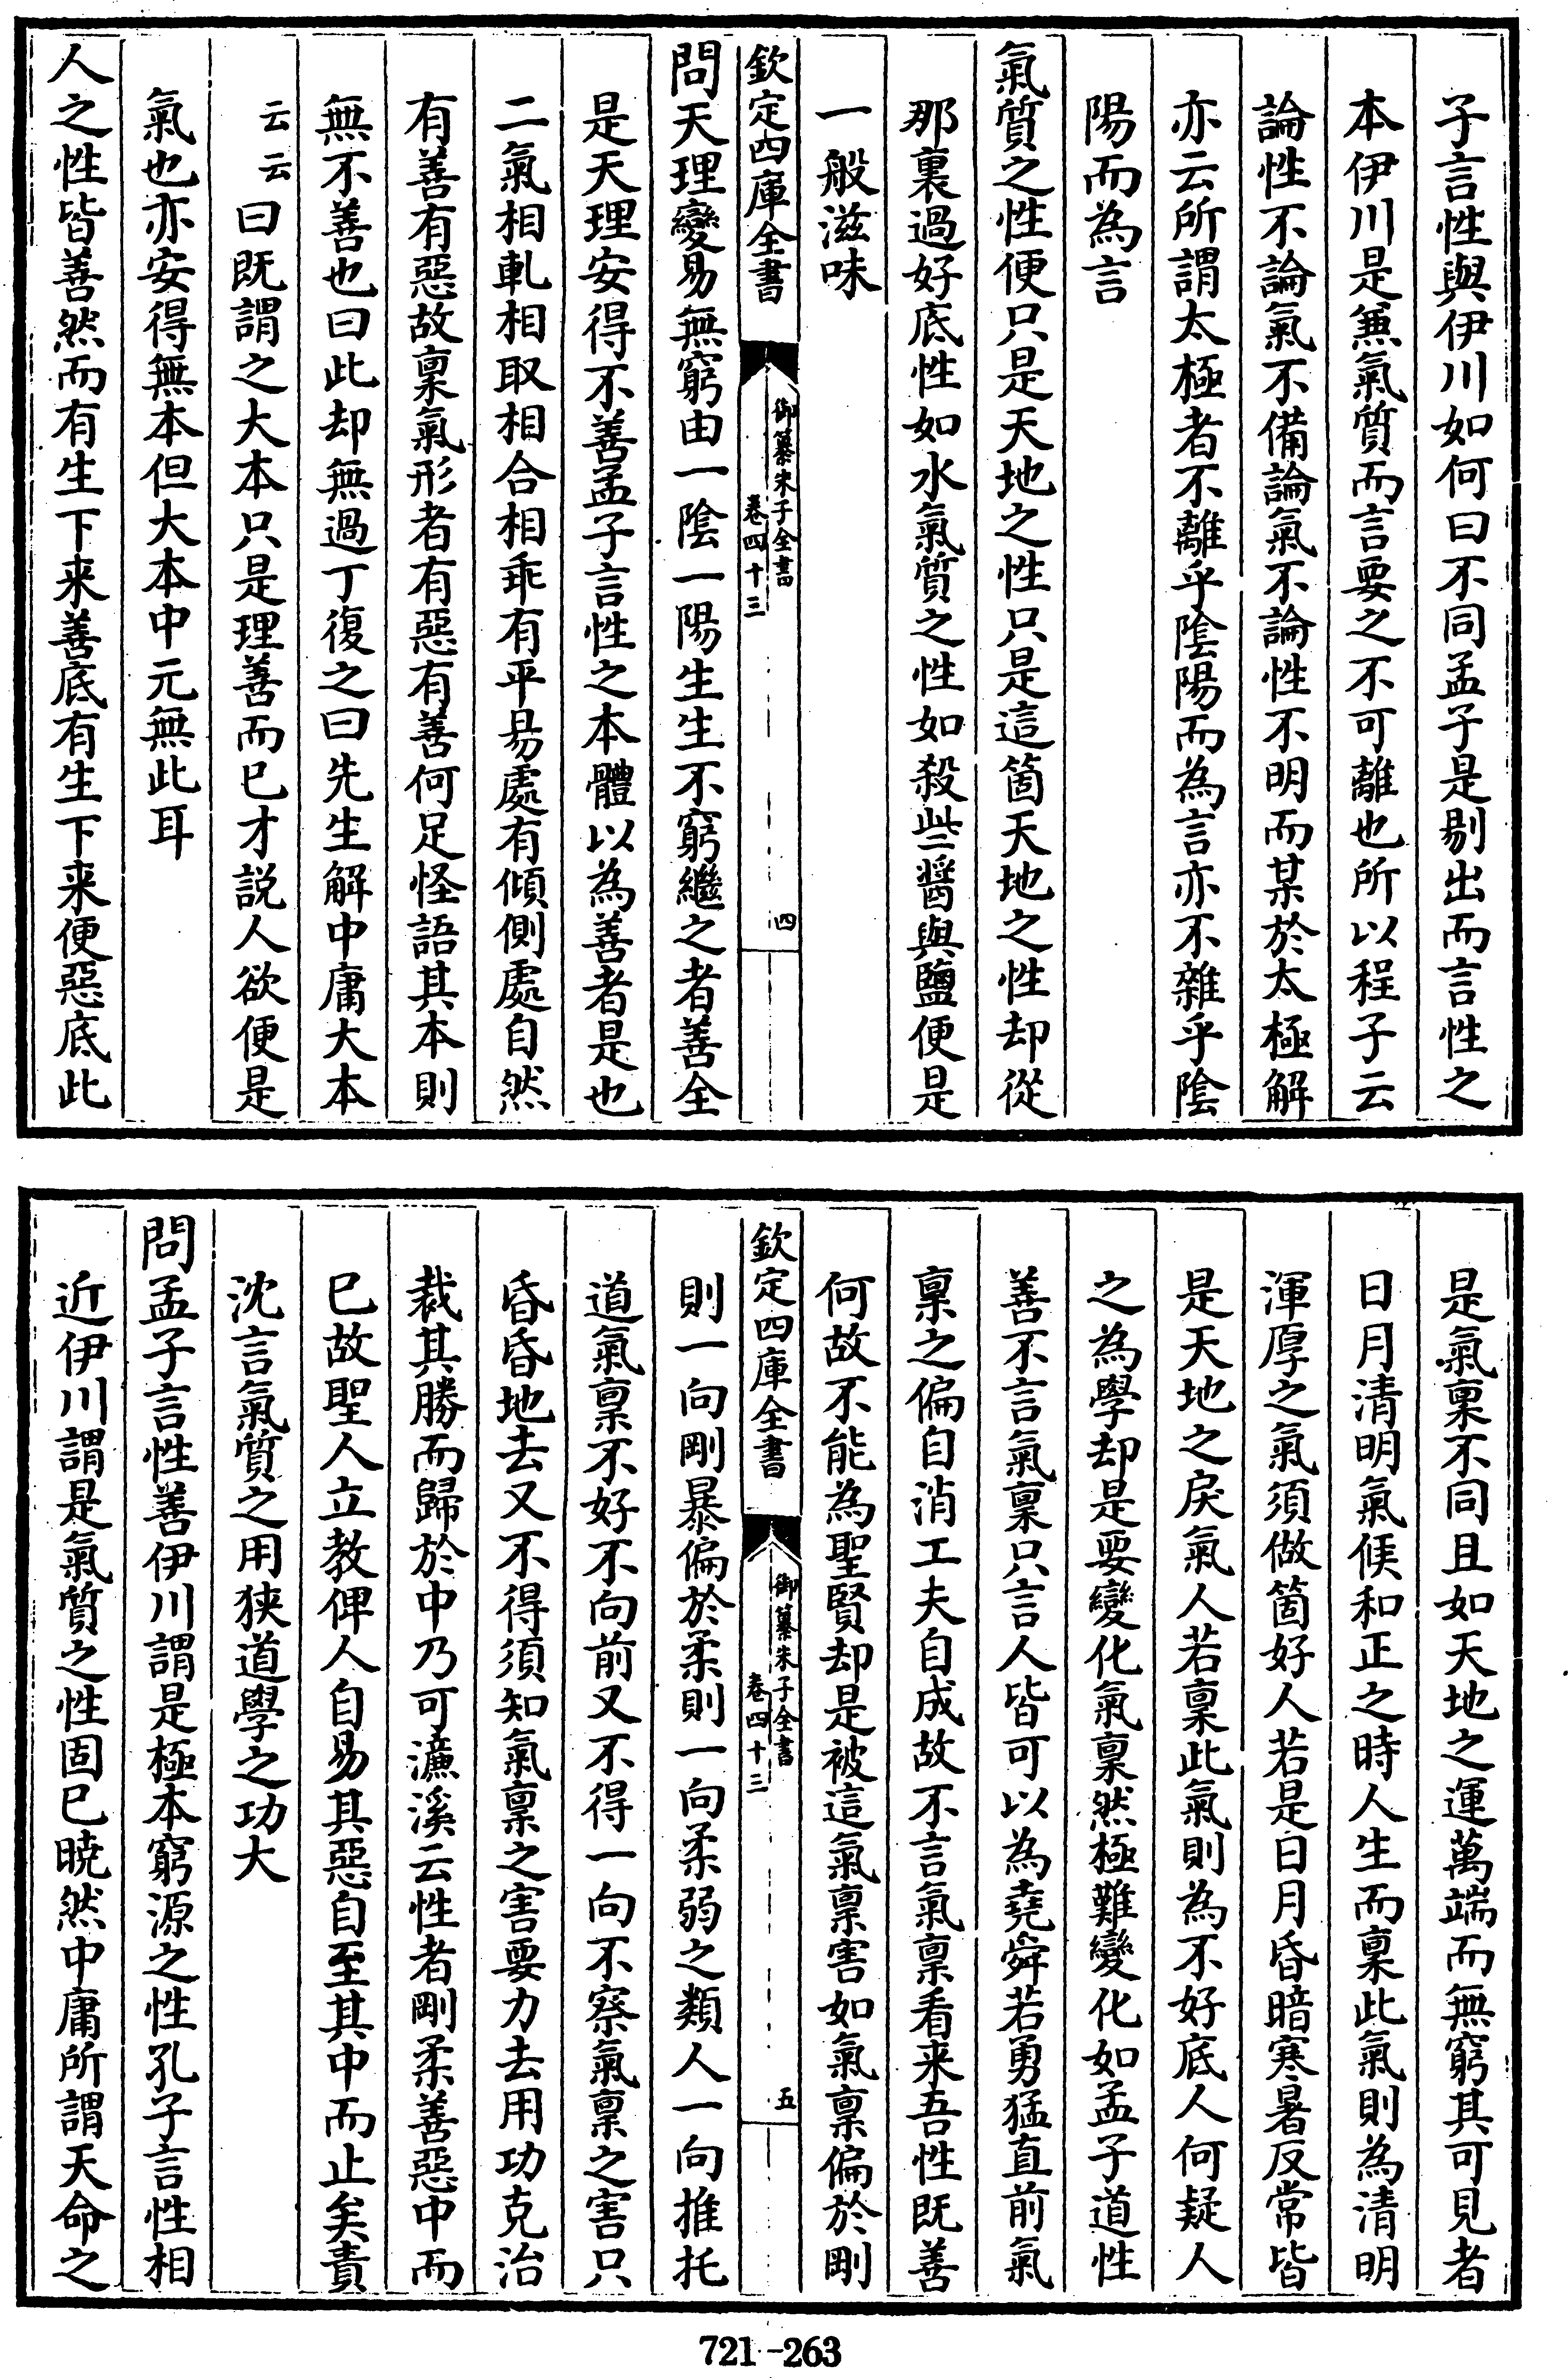 子言性與伊川如何曰不同孟子是剔出而言性之
本伊川是兼氣質而言要之不可離也所以程子云
論性不論氣不備論氣不論性不明而某於太極解
亦云所謂太極者不離乎陰陽而為言亦不雜乎陰
陽而為言
氣質之性便只是天地之性只是這箇天地之性却從
那裏過好底性如水氣質之性如殺些醬與鹽便是
一般滋味
欽定四庫全書
御纂朱子全書
卷四十三
四
問天理變易無窮由一陰一陽生生不窮繼之者善全
是天理安得不善孟子言性之本體以為善者是也
二氣相軋相取相合相乖有平易處有傾側處自然
有善有惡故稟氣形者有惡有善何足怪語其本則
無不善也曰此却無過丁復之曰先生解中庸大本
云云曰既謂之大本只是理善而已才說人欲便是
氣也亦安得無本但大本中元無此耳
人之性皆善然而有生下来善底有生下来便惡底此
是氣稟不同且如天地之運萬端而無窮其可見者
日月清明氣候和正之時人生而稟此氣則為清明
渾厚之氣須做箇好人若是日月昏暗寒暑反常皆
是天地之戾氣人若稟此氣則為不好底人何疑人
之為學却是要變化氣稟然極難變化如孟子道性
善不言氣稟只言人皆可以為堯舜若勇猛直前氣
稟之偏自消工夫自成故不言氣稟看来吾性既善
何故不能為聖賢却是被這氣稟害如氣稟偏於剛
欽定四庫全書
御纂朱子全書
卷四十三
五
則一向剛暴偏於柔則一向柔弱之類人一向推托
道氣稟不好不向前又不得一向不察氣稟之害只
昏昏地去又不得須知氣稟之害要力去用功克治
裁其勝而歸於中乃可濂溪云性者剛柔善惡中而
已故聖人立教俾人自易其惡自至其中而止矣責
沈言氣質之用狹道學之功大
問孟子言性善伊川謂是極本窮源之性孔子言性相
近伊川謂是氣質之性固已曉然中庸所謂天命之
721-263